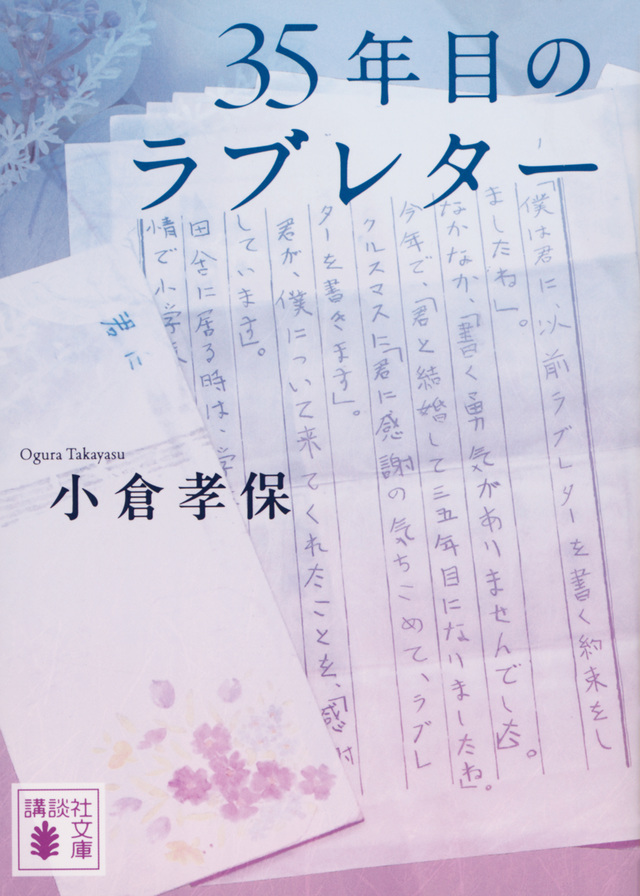 35年目の
ラブレター
「僕は君に、以前ラブレターを書く約束をし
ましたね」。
なかなか、「書く勇気がありませんでした。
今年で、「君と結婚して三五年目になりましたね」。
クルスマスに「君に感謝の気ちこめて、ラブレ
ターを書きます」。
君が、僕について来てくれたことを、「感
しています」。
田舎に居る時は、学
情で小学
君に
Ogura Takayasu
小倉孝保
講談社
文庫